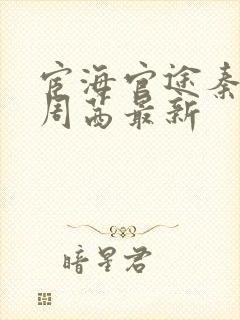 宦海官途秦
周茜最新
暗星君